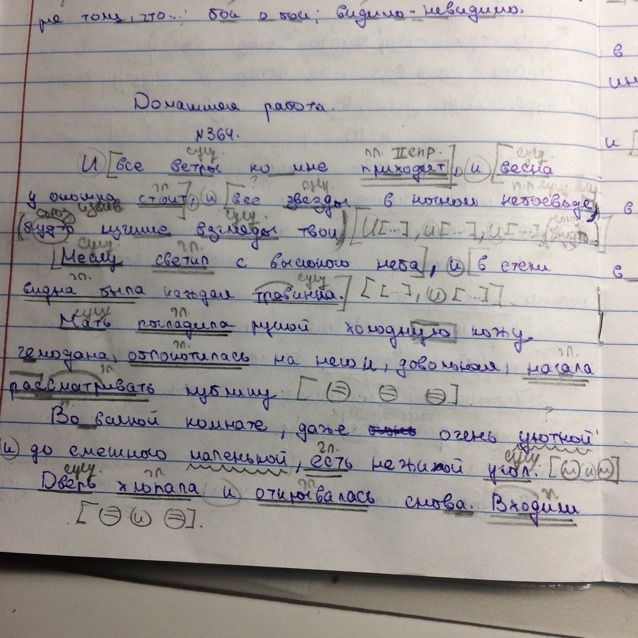 ре того, что...: бои о бои; видимо-невидимо.
Домашняя работа.
№364.
И [все ветры ко мне приходят], и [весна
у окошка стоит], и [все звезды в ночном небосводе]
(будто лучшие взгляды твои) [И[...], и[...], и[...], (будто
[Месяц светил с высокого неба], и [в степи
видна была каждая травинка.] [[...], и [...]].
Мать погладила рукой холодную кожу
чемодана, облокотилась на него и, довольная, начала
рассматривать публику.
Во всякой комнате, даже очень уютной
и до смешного маленькой, есть нежилой угол.
Дверь хлопала и открывалась снова. Входили